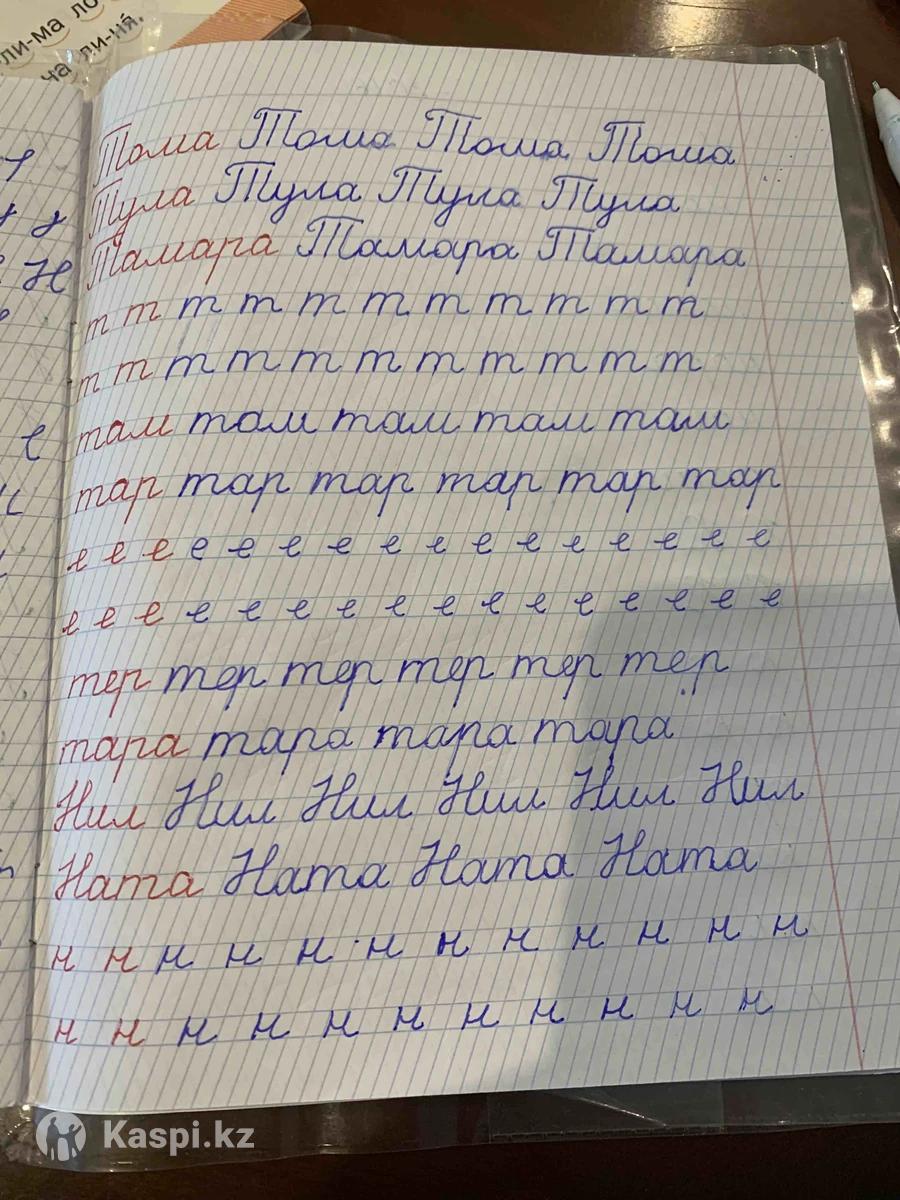 ли-ма ло
ча ли-ня.
Тома Тома Тома Тома
Тула Тула Тула Тула
Тамара Тамара Тамара
т т т т т т т т т т т
т т т т т т т т т т т
там там там там там
тар тар тар тар тар тар
е е е е е е е е е е е е е е е
е е е е е е е е е е е е е е е
тер тер тер тер тер тер
тара тара тара тара
Нил Нил Нил Нил Нил Нил
Ната Ната Ната Ната
н н н н н н н н н н н н
н н н н н н н н н н н
у
Н
е
Kaspi.kz